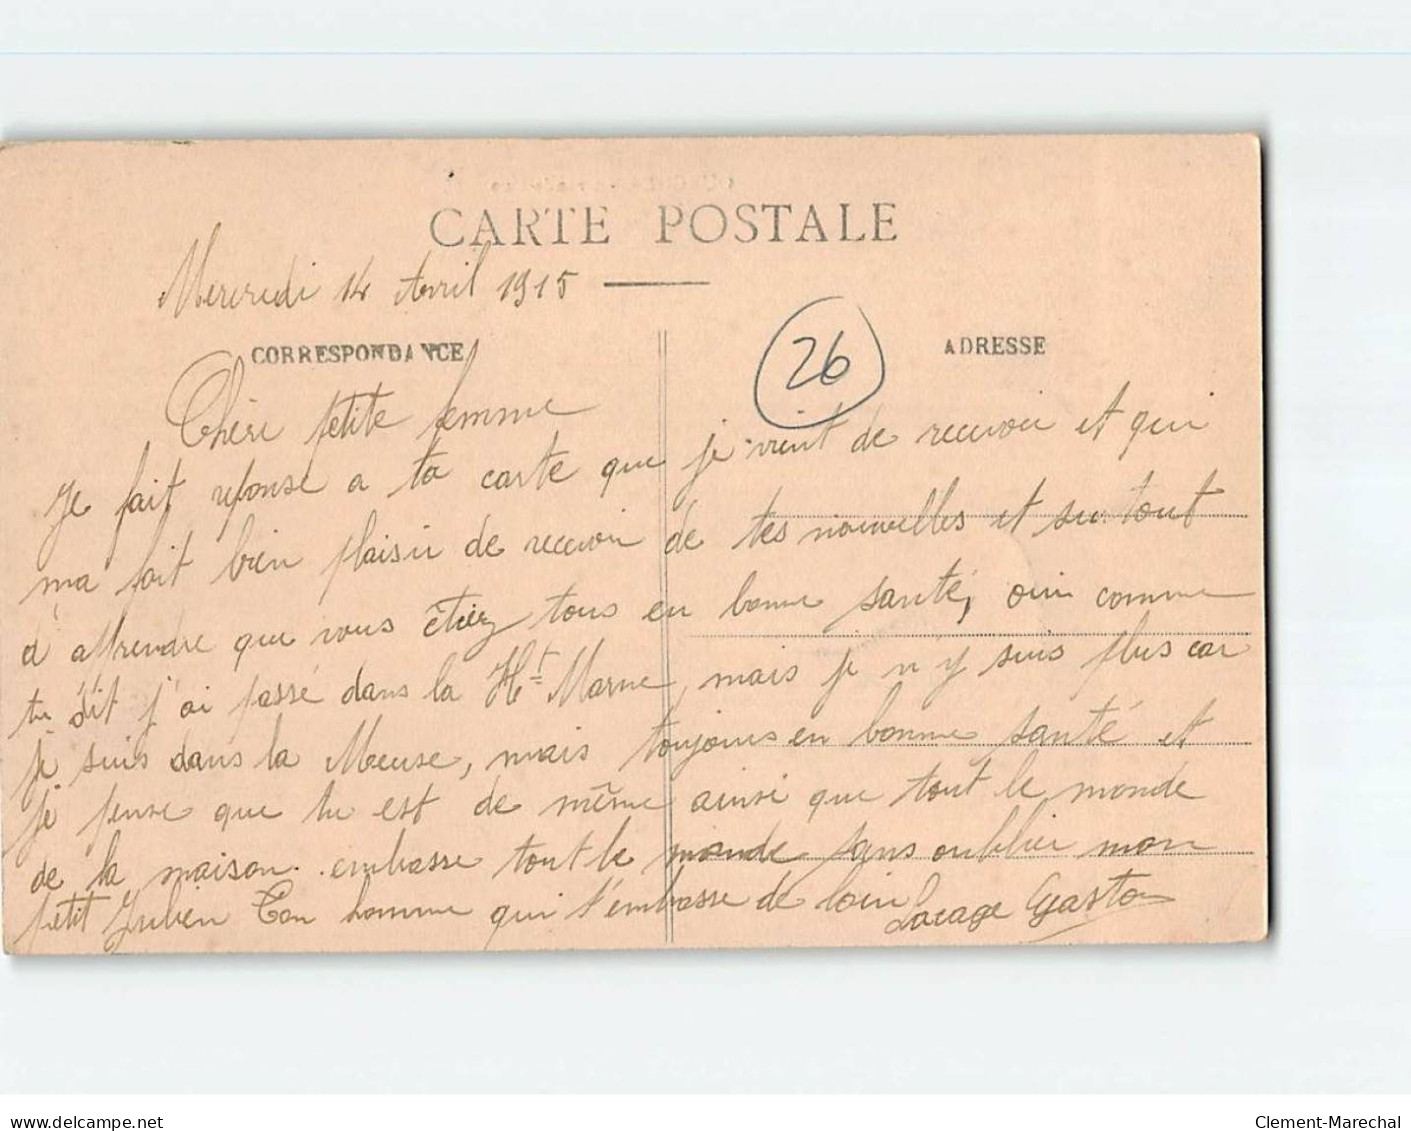 CARTE POSTALE
Mercredi 14 Avril 1915
CORRESPONDANCE
26
ADRESSE
Chère petite femme
Je fait reponse a ta carte que je vient de recevoir et qui
ma fait bien plaisir de recevoir de tes nouvelles et surtout
d'attrendre que vous êtiez tous en bonne santé, oui comme
tu dit j'ai passé dans la Ht Marne, mais je n'y suis plus car
je suis dans la Meuse, mais toujours en bonne santé et
je pense que tu est de même ainsi que tout le monde
de la maison. embrasse tout le monde sans oublier mon
petit Julien Ton homme qui t'embrasse de loin Lacage Gaston
delcampe.net
Clement-Marechal